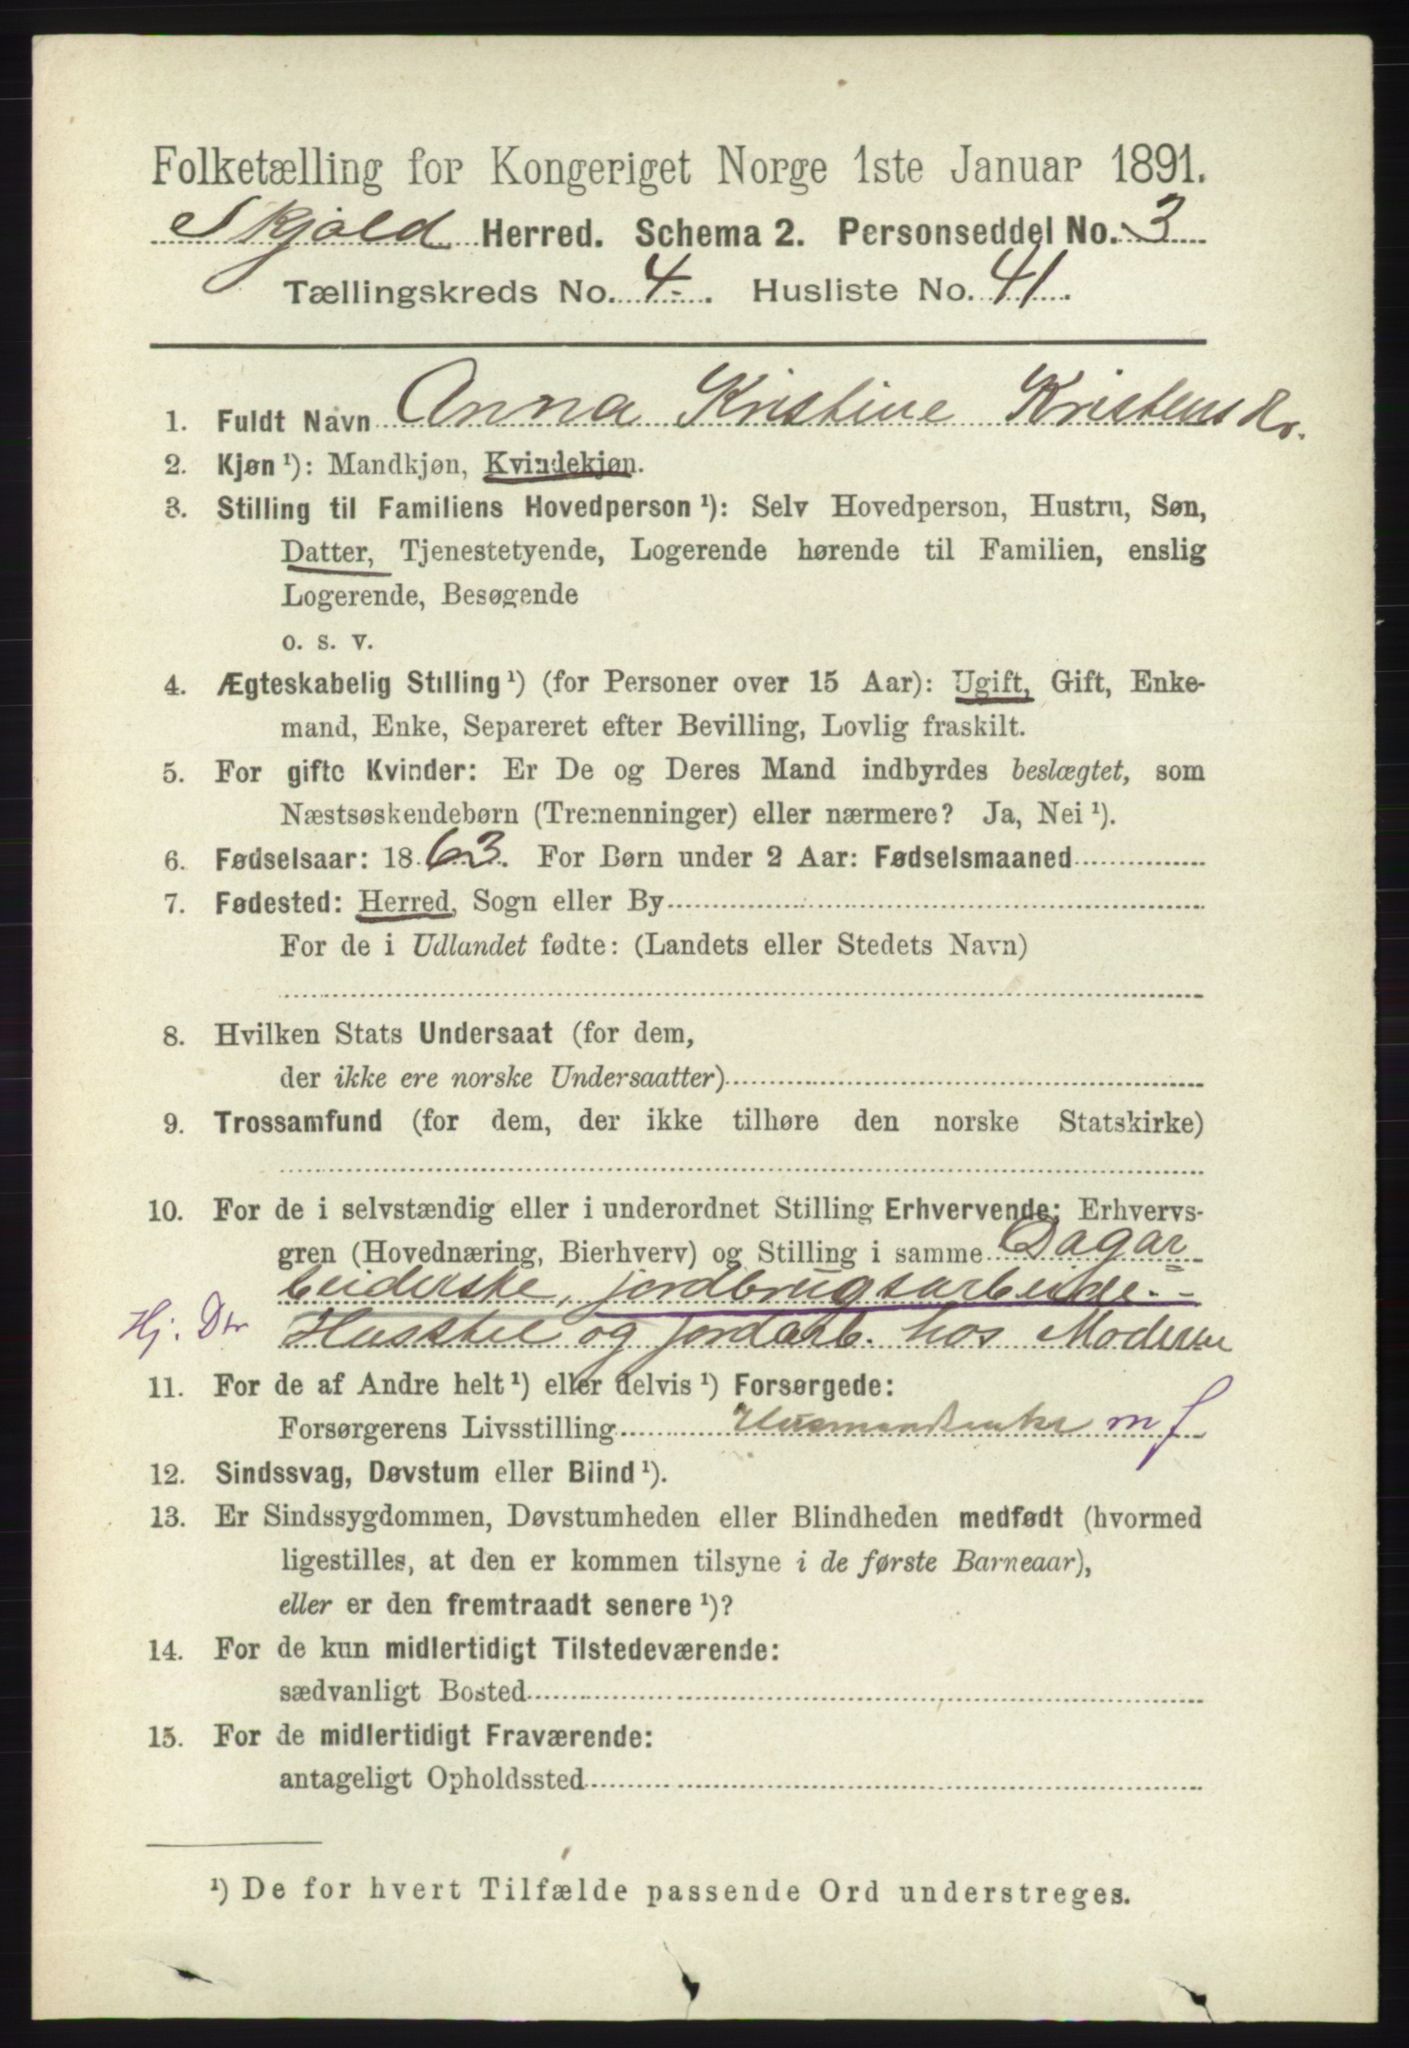 Folketælling for Kongeriget Norge 1ste Januar 1891.
Skjold Herred. Schema 2. Personseddel No. 3
Tællingskreds No. 4. Husliste No. 41.
1. Fuldt Navn Anna Kristine Kristensdr.
2. Kjøn¹): Mandkjøn, Kvindekjøn.
3. Stilling til Familiens Hovedperson¹): Selv Hovedperson, Hustru, Søn,
Datter, Tjenestetyende, Logerende hørende til Familien, enslig
Logerende, Besøgende
o. s. v.
4. Ægteskabelig Stilling¹) (for Personer over 15 Aar): Ugift, Gift, Enke-
mand, Enke, Separeret efter Bevilling, Lovlig fraskilt.
5. For gifte Kvinder: Er De og Deres Mand indbyrdes beslægtet, som
Næstsøskendebørn (Tremenninger) eller nærmere? Ja, Nei¹).
6. Fødselsaar: 1863. For Børn under 2 Aar: Fødselsmaaned
7. Fødested: Herred, Sogn eller By
For de i Udlandet fødte: (Landets eller Stedets Navn)
8. Hvilken Stats Undersaat (for dem,
der ikke ere norske Undersaatter)
9. Trossamfund (for dem, der ikke tilhøre den norske Statskirke)
10. For de i selvstændig eller i underordnet Stilling Erhvervende: Erhvervs-
gren (Hovednæring, Bierhverv) og Stilling i samme Dagar
beiderske, jordbrugsarbeide.-
Hj. Dtr Husstel og jordarb. hos Moderen
11. For de af Andre helt¹) eller delvis¹) Forsørgede:
Forsørgerens Livsstilling Husmandsenke mf
12. Sindssvag, Døvstum eller Blind¹).
13. Er Sindssygdommen, Døvstumheden eller Blindheden medfødt (hvormed
ligestilles, at den er kommen tilsyne i de første Barneaar),
eller er den fremtraadt senere¹)?
14. For de kun midlertidigt Tilstedeværende:
sædvanligt Bosted
15. For de midlertidigt Fraværende:
antageligt Opholdssted
¹) De for hvert Tilfælde passende Ord understreges.